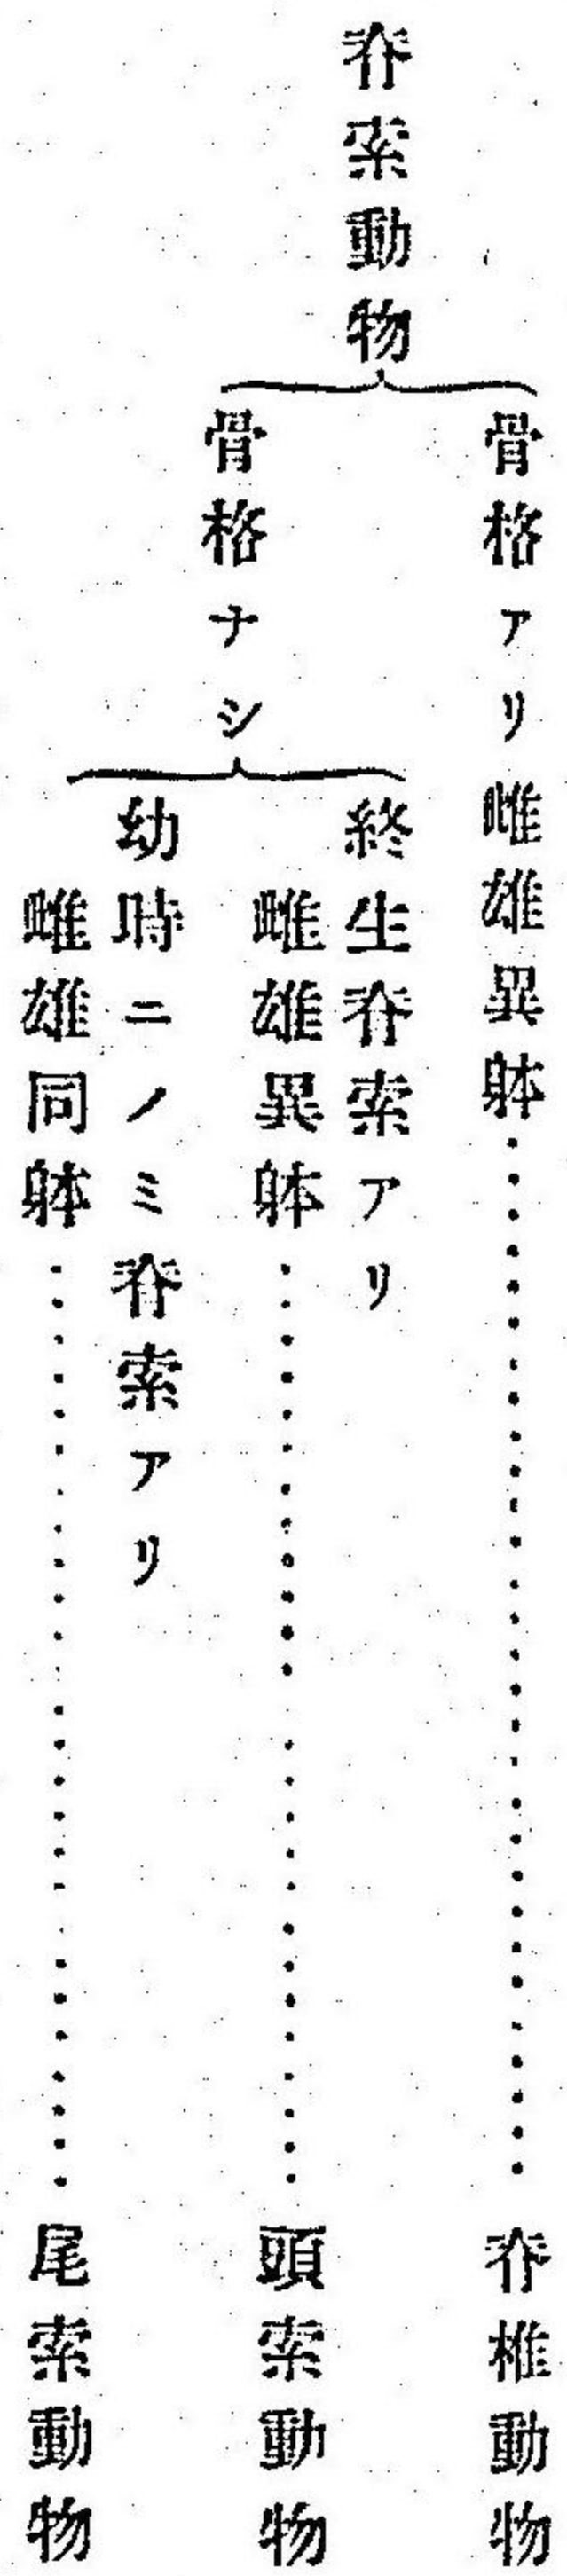 脊索動物
骨格アリ雌雄異躰……脊椎動物
骨格ナシ
終生脊索アリ
雌雄異躰……頭索動物
幼時ニノミ脊索アリ
雌雄同躰……尾索動物